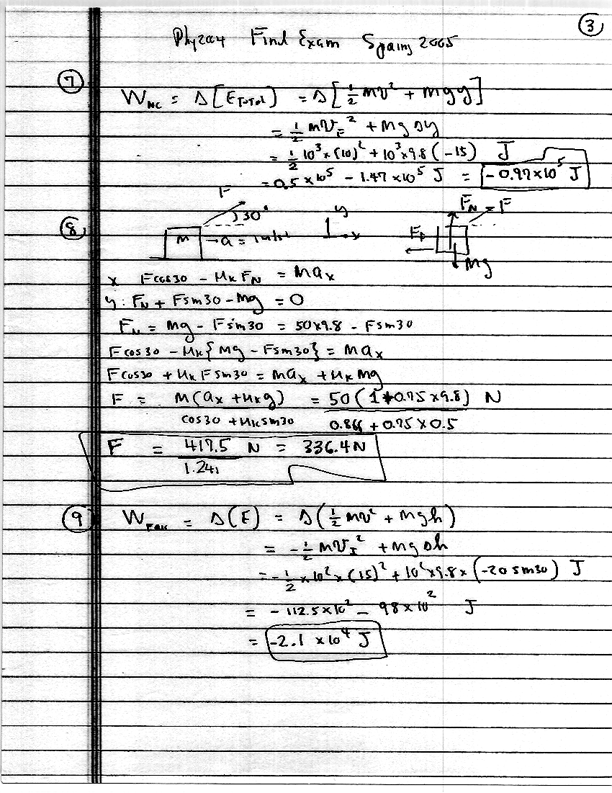 ③
Phy2004 Final Exam Spring 2005
⑦
W_NC = Δ[E_Total] = Δ[½mv² + mgy]
= ½mv_F² + mgΔy
= ½10³×(10)² + 10³×9.8(-15) J
= 0.5×10⁵ - 1.47×10⁵ J = -0.97×10⁵ J
F F_N F
⑧ 30° y F_f
M → a = 1m/s² x Mg
x Fcos30 - μ_K F_N = ma_x
y: F_N + Fsin30 - Mg = 0
F_N = Mg - Fsin30 = 50×9.8 - Fsin30
Fcos30 - μ_K{Mg - Fsin30} = Ma_x
Fcos30 + μ_K Fsin30 = Ma_x + μ_K Mg
F = M(a_x + μ_K g) / cos30 + μ_K sin30 = 50(1+0.75×9.8) / 0.866 + 0.75×0.5 N
F = 417.5 / 1.241 N = 336.4N
⑨ W_Fric = Δ(E) = Δ(½mv² + mgh)
= -½mv_I² + mgΔh
= -½×10²×(15)² + 10²×9.8×(-20sin30) J
= -112.5×10² - 98×10² J
= -2.1×10⁴ J